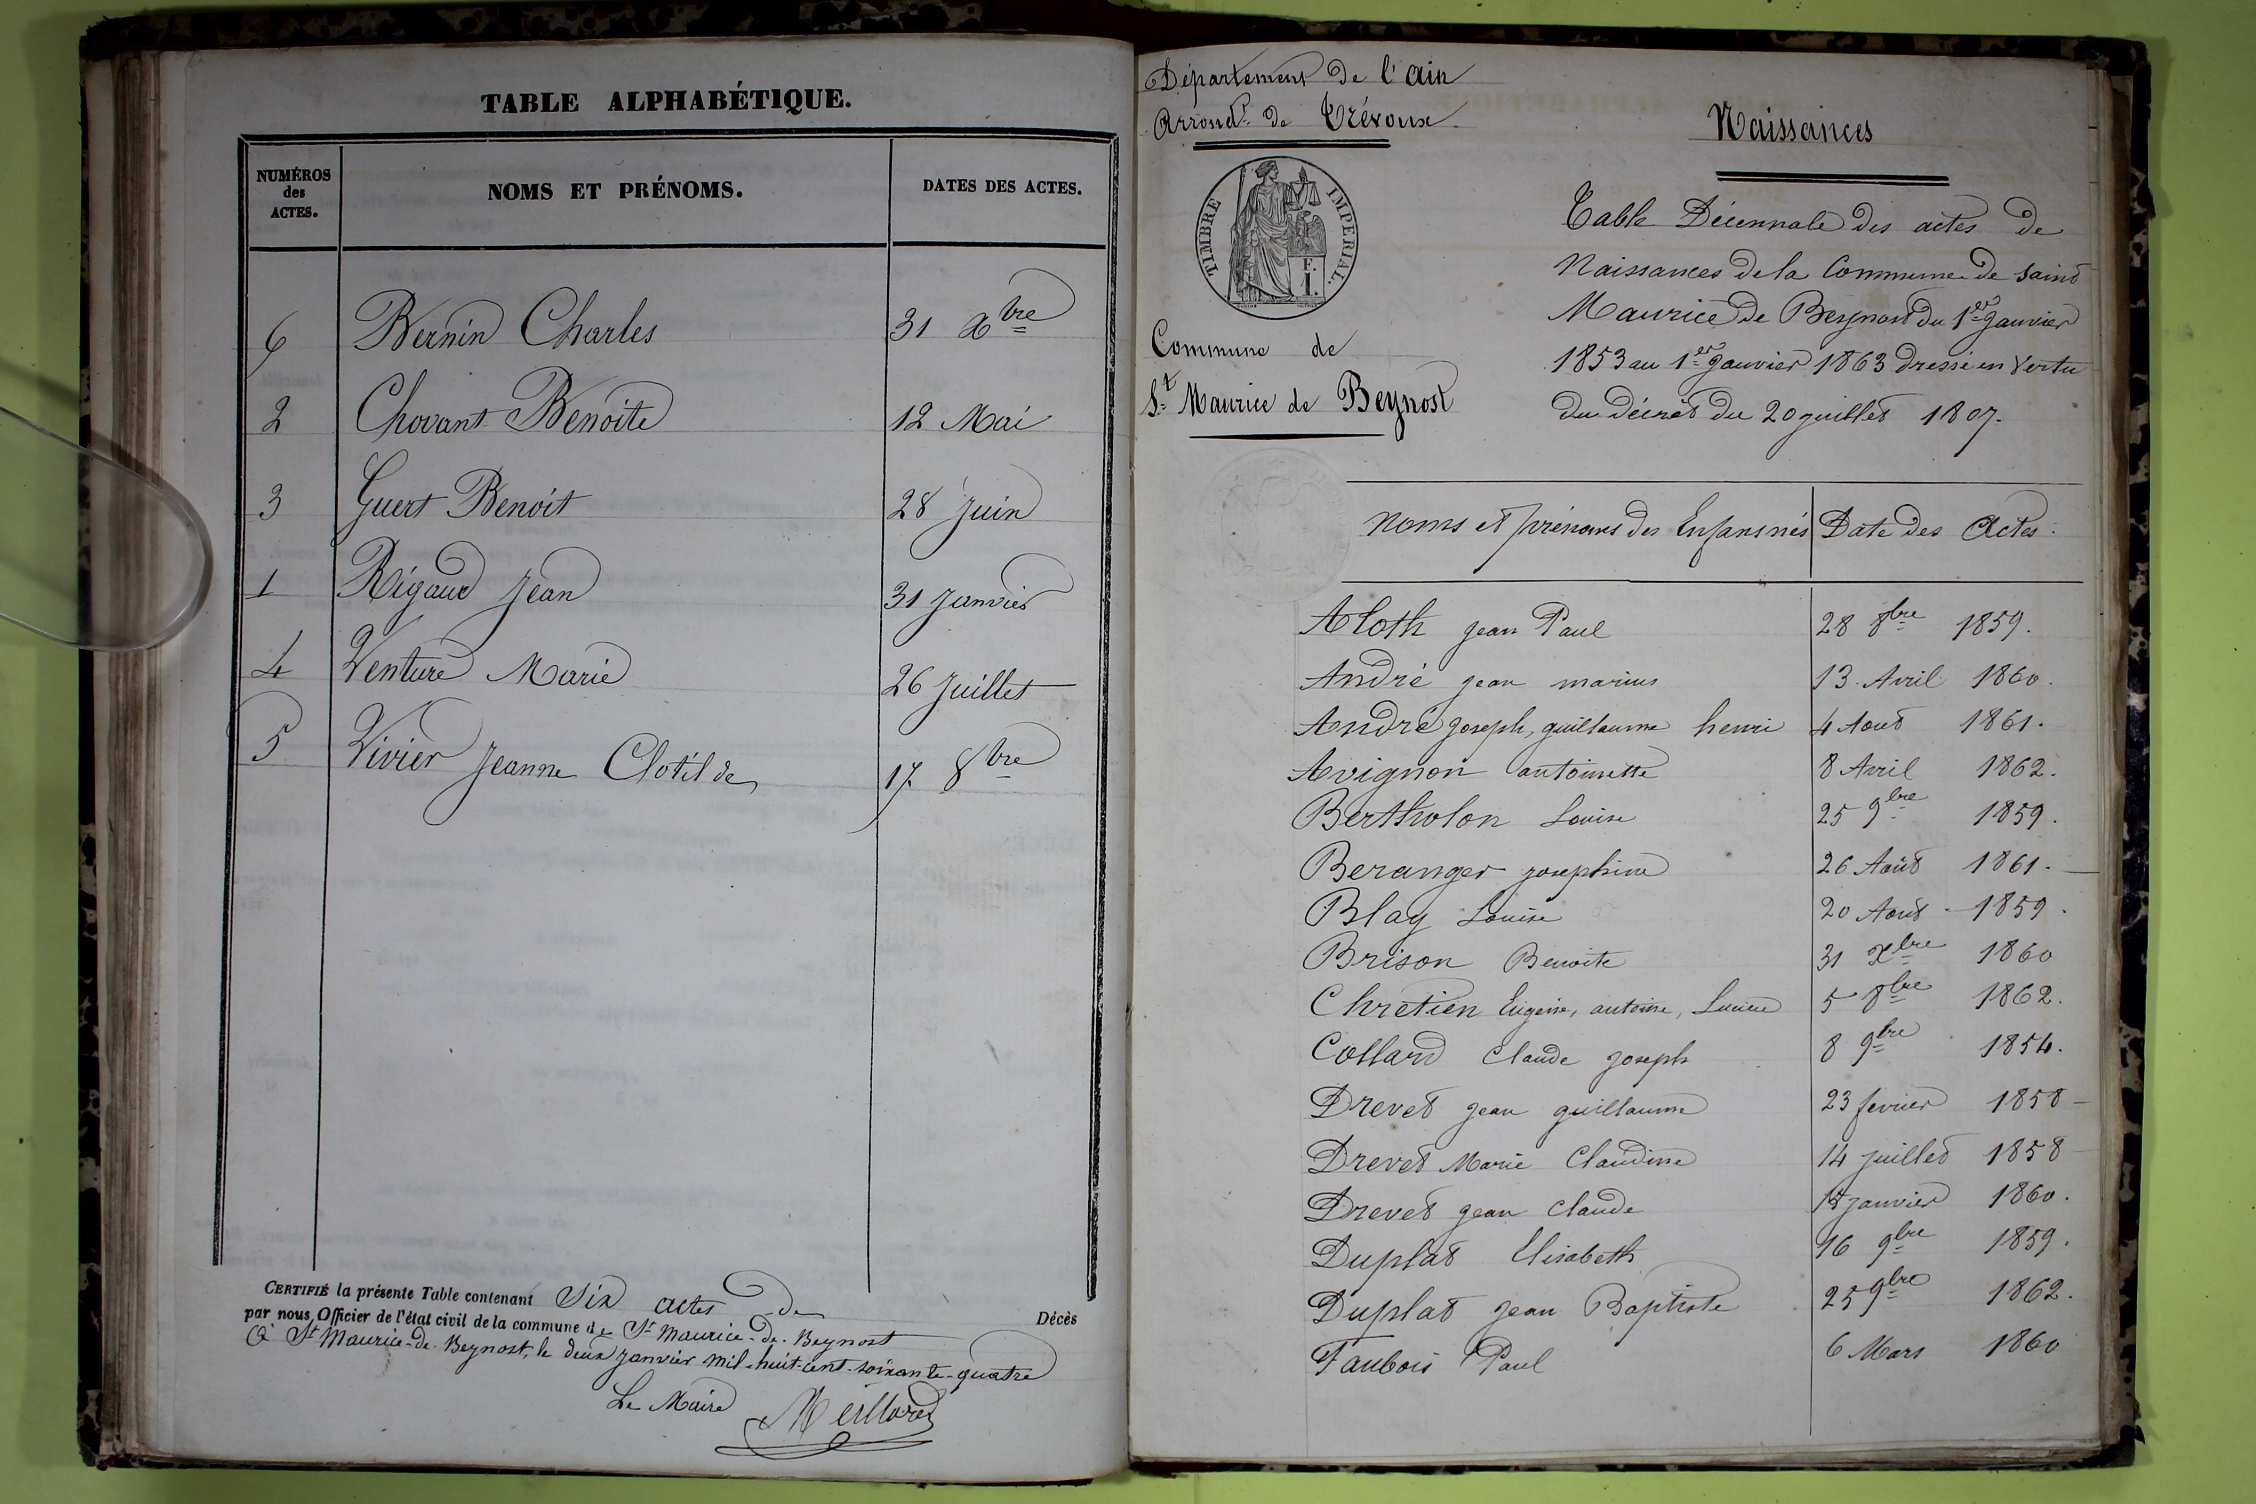 TABLE ALPHABÉTIQUE.
NUMÉROS des ACTES. NOMS ET PRÉNOMS. DATES DES ACTES.
6 Bernin Charles 31 Xbre
2 Chovant Benoite 12 Mai
3 Guert Benoit 28 Juin
1 Rigaud Jean 31 Janvier
4 Venture Marie 26 Juillet
5 Vivier Jeanne Clotilde 17 8bre
CERTIFIÉ la présente Table contenant Six actes de Décès
par nous Officier de l'état civil de la commune de St Maurice-de-Beynost
à St Maurice-de-Beynost, le deux janvier mil-huit-cent-soixante-quatre
Le Maire
Département de l'Ain
Arrondt de Trévoux
TIMBRE IMPERIAL.
F.
1.
Commune de
St Maurice de Beynost
Naissances
Table Décennale des actes de
Naissances de la Commune de Saint
Maurice de Beynost du 1er Janvier
1853 au 1er Janvier 1863 dressé en Vertu
du décret du 20 juillet 1807.
Noms et prénoms des Enfans nés Date des Actes
Aloth jean Paul 28 8bre 1859.
André jean marius 13 Avril 1860.
André joseph, guillaume henri 4 Aout 1861.
Avignon antoinette 8 Avril 1862.
Bertholon Louise 25 9bre 1859.
Beranger josephine 26 Août 1861.
Blay Louise 20 Août 1859.
Brison Benoite 31 Xbre 1860
Chretien Eugene, antoine, 5 8bre 1862.
Collard Claude joseph 8 9bre 1854.
Drevet jean guillaume 23 fevrier 1858
Drevet Marie Claudine 14 juillet 1858
Drevet jean Claude janvier 1860.
Duplat Elisabeth 16 9bre 1859.
Duplat jean Baptiste 25 9bre 1862.
Faubois Paul 6 Mars 1860